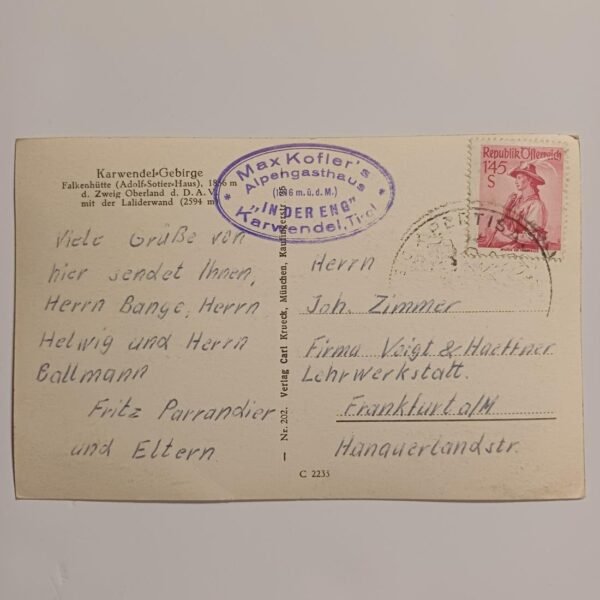 Karwendel-Gebirge
Falkenhütte (Adolf-Sotier-Haus), 1846 m
d. Zweig Oberland d. D. A. V.
mit der Laliderwand (2594 m
Max Kofler's
Alpengasthaus
(1216 m. ü. d. M.)
„IN DER ENG"
Karwendel, Tirol
Republik Österreich
1'45
S
PERTIS
Viele Grüße von
hier sendet Ihnen,
Herrn Bange, Herrn
Helwig und Herrn
Ballmann
Fritz Parrandier
und Eltern
Nr. 202. Verlag Carl Krueck, München, Kaufingerstr
Herrn
Joh. Zimmer
Firma Voigt & Haeffner
Lehrwerkstatt.
Frankfurt a/M
Hanauerlandstr.
C 2233